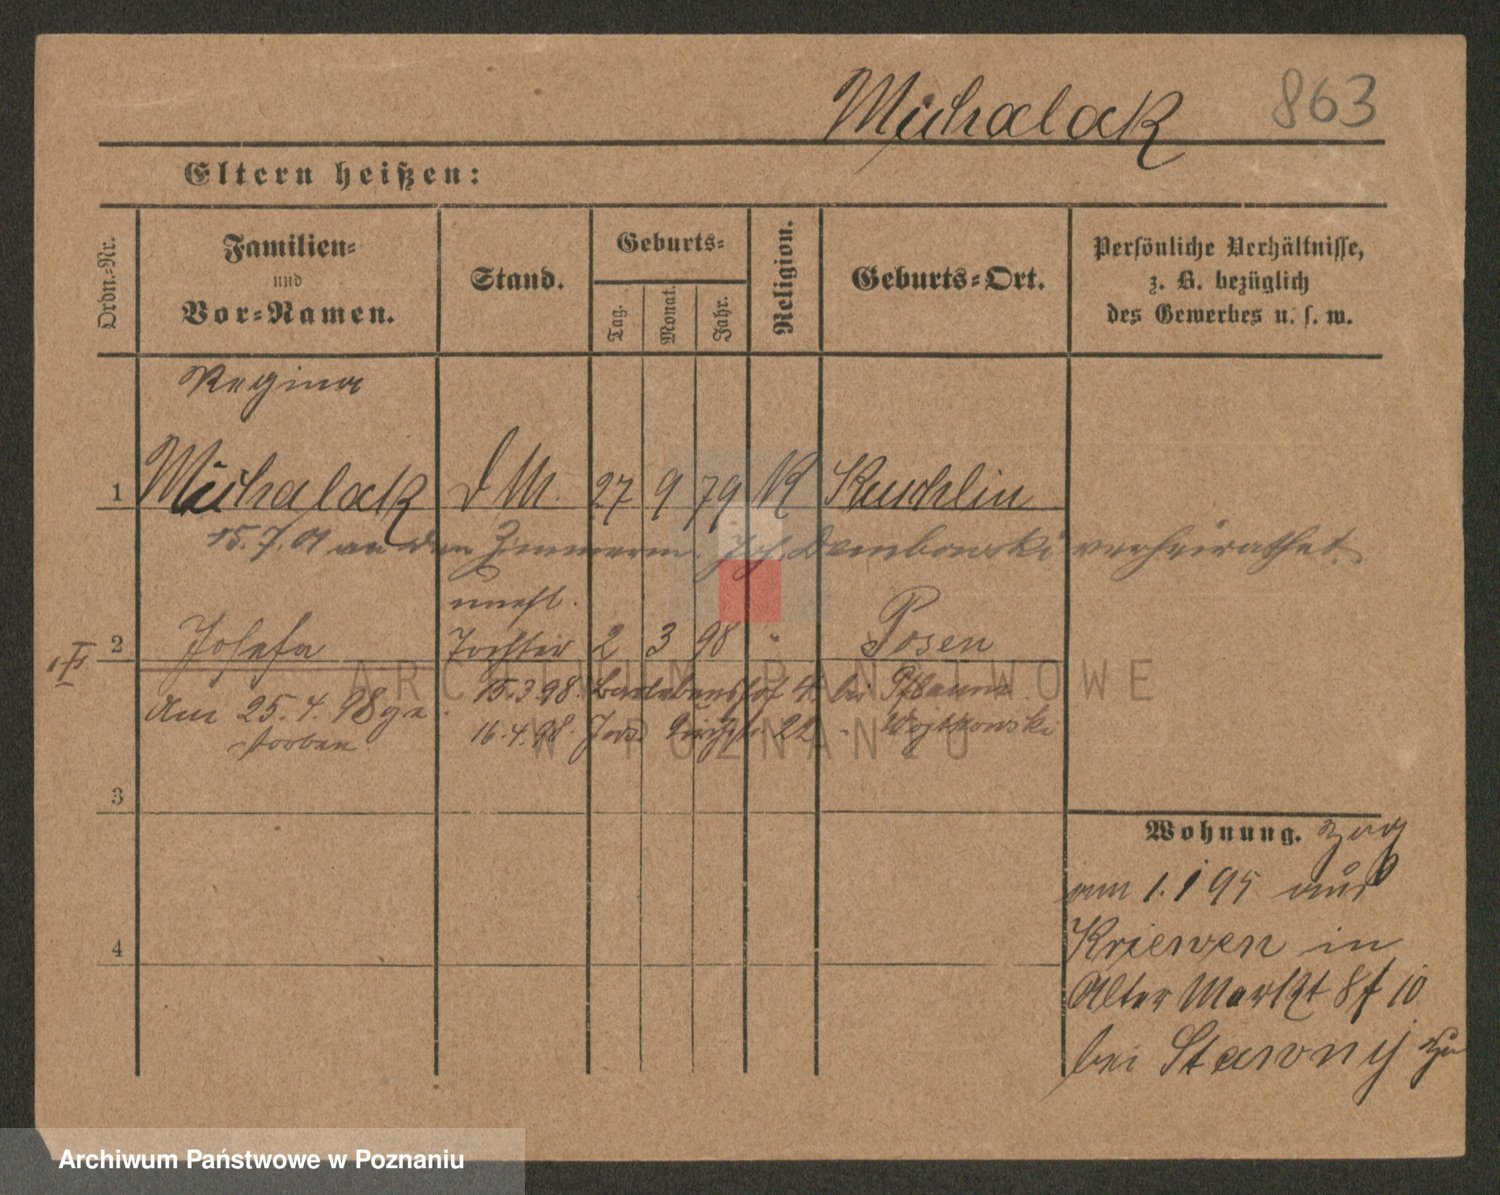 Michalak 863
Eltern heißen:
Ordn.-Nr.
Familien-
und
Vor-Namen.
Stand.
Geburts-
Tag.
Monat.
Jahr.
Religion.
Geburts-Ort.
Persönliche Verhältnisse,
z. B. bezüglich
des Gewerbes u. s. w.
Regina
1 Michalak d M. 27 9 79 K Kuschlin
15.7.01 an den Zimmerm. Joh. Dembowski verheirathet.
unehl.
2 Josefa Tochter 2 3 98 " Posen
Am 25.4.98 ge-
storben
15.3.98. 4. bei Pflaum
16.4.98. 22 Wojtkowski
3
Wohnung. zog
am 1.1 95 aus
4
Kriewen in
Alter Markt 8 10
bei Stawny zu
ARCHIWUM PAŃSTWOWE
W POZNANIU
Archiwum Państwowe w Poznaniu